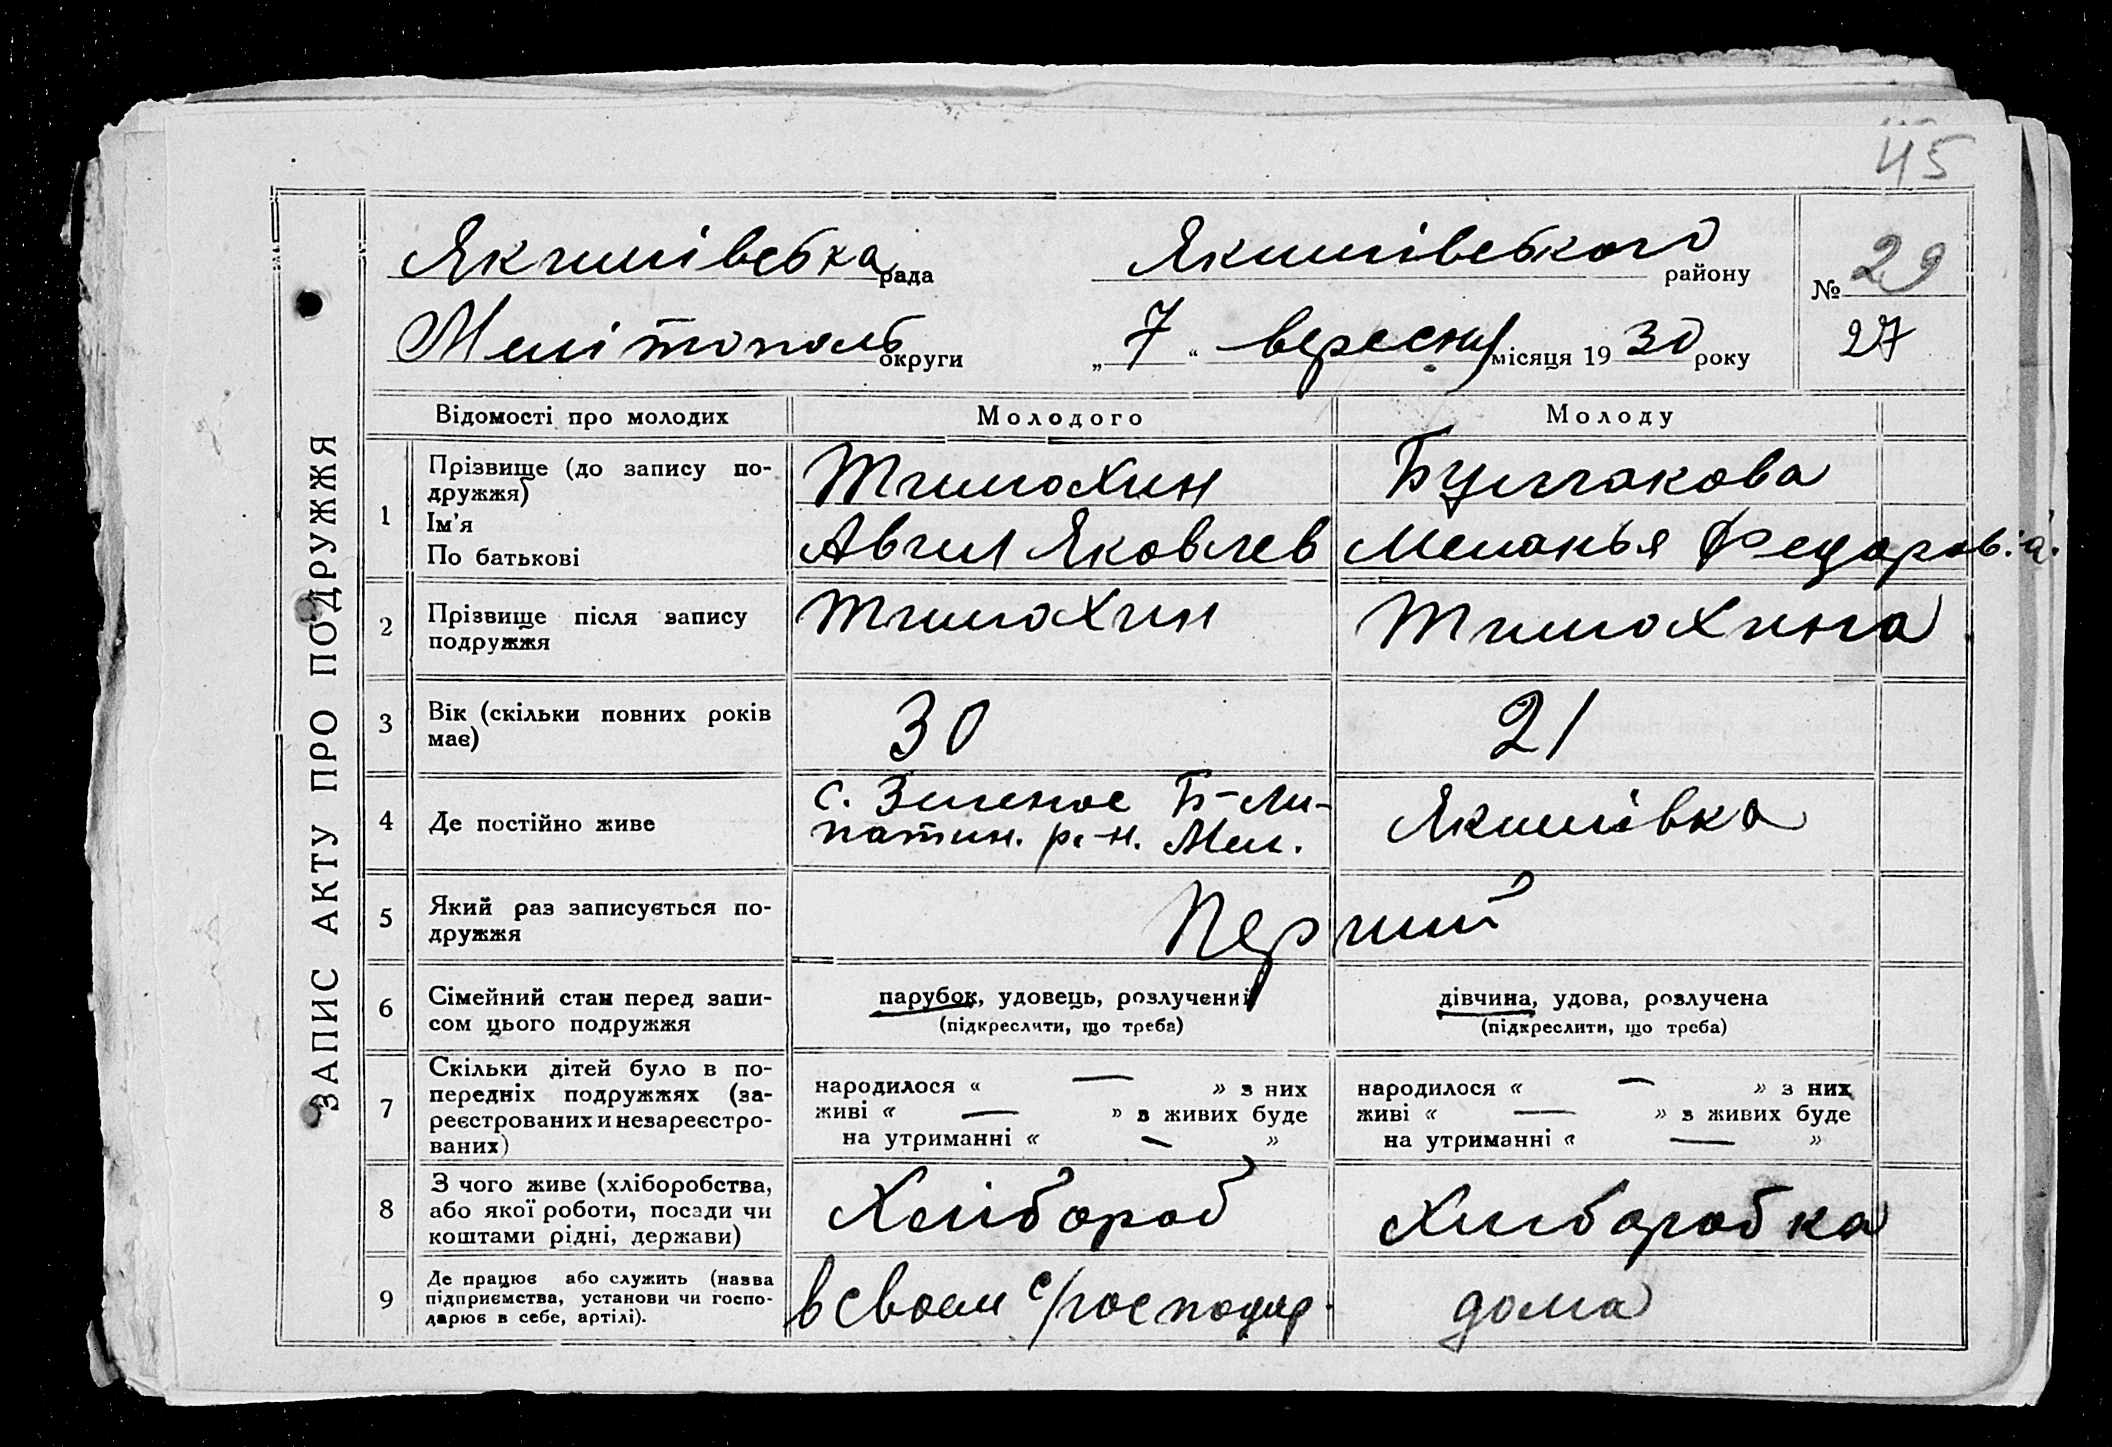 45
Якимівська рада Якимівського району № 29
Мелітополь округи „ 7 “ вересня місяця 19 30 року 27
ЗАПИС АКТУ ПРО ПОДРУЖЖЯ
Відомості про молодих Молодого Молоду
1 Прізвище (до запису по-
дружжя) Тимохин Булгакова
Ім'я
По батькові Авил Яковлев Меланья Федоров.а.
2 Прізвище після запису
подружжя Тимохин Тимохина
3 Вік (скільки повних років
має) 30 21
4 Де постійно живе с. Зеленое Б-Ли-
патин. р-н. Мел. Якимівка
5 Який раз записується по-
дружжя Перший
6 Сімейний стан перед запи-
сом цього подружжя
парубок, удовець, розлучений
(підкреслити, що треба)
дівчина, удова, розлучена
(підкреслити, що треба)
7 Скільки дітей було в по-
передніх подружжях (за-
реєстрованих и незареєстро-
ваних)
народилося « — » з них
живі « — » з живих буде
на утриманні « — »
народилося « — » з них
живі « — » з живих буде
на утриманні « — »
8 З чого живе (хліборобства,
або якої роботи, посади чи
коштами рідні, держави)
Хлібороб Хлиборобка
9 Де працює або служить (назва
підприємства, установи чи госпо-
дарює в себе, артілі).
в своем с/господар. дома